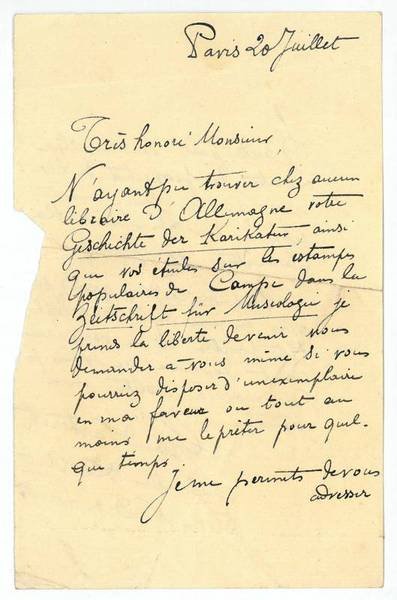 Paris 20 Juillet
Très honoré Monsieur,
N'ayant pu trouver chez aucun
libraire d'Allemagne votre
Geschichte der Karikatur, ainsi
que vos études sur les estampes
populaires de Campe dans la
Zeitschrift für Museologie je
prends la liberté de venir vous
demander à vous même si vous
pourriez disposer d'un exemplaire
en ma faveur ou tout au
moins me le prêter pour quel-
que temps.
Je me permets de vous
adresser